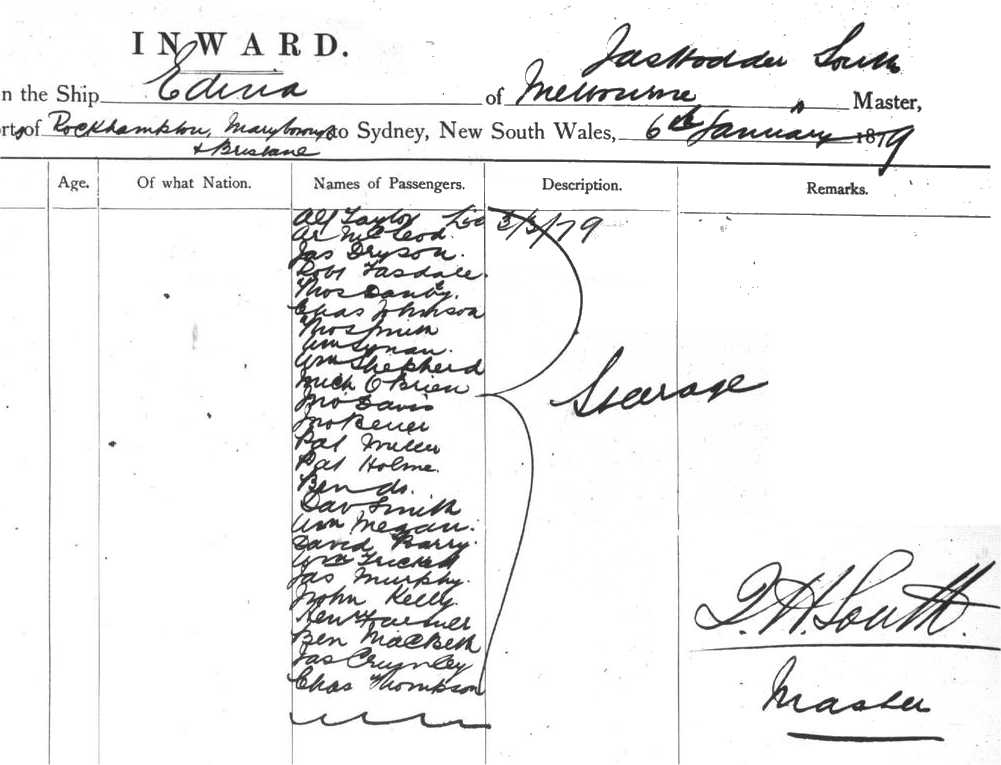 INWARD.
Jas Hodder South
n the Ship Edina of Melbourne Master,
orts of Rockhampton, Maryborough to Sydney, New South Wales, 6th January 1879
& Brisbane
Age. Of what Nation. Names of Passengers. Description. Remarks.
Alf Taylor 3/3/79
Ar McLeod.
Jas Dryson.
Robt Tasdale.
Thos Danby.
Chas Johnson
Thos Smith
Wm Lynan.
Wm Shepherd
Mich O'Brien
Jno Davis
Jno
Pat Miller
Pat Holme.
Ben do.
Dav Smith
Wm Megan.
David Barry.
Wm Trickett
Jas Murphy.
John Kelly.
Farmer
Ben MacBeth
Jas Crumley
Chas Thompson
Stearage
J.H. South.
Master